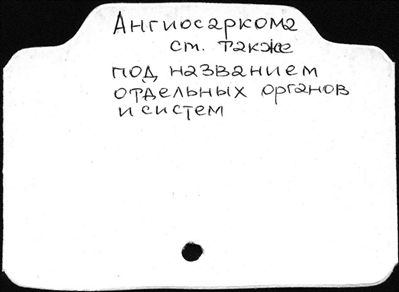 Ангиосаркома
ст. также
под названием
отдельных органов
и систем